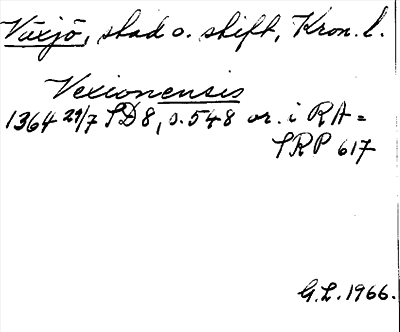 Växjö, stad o. stift, Kron. l.
Vexionensis
1364 29/7 SD8, s.548 or. i RA =
SRP 617
G.L. 1966.